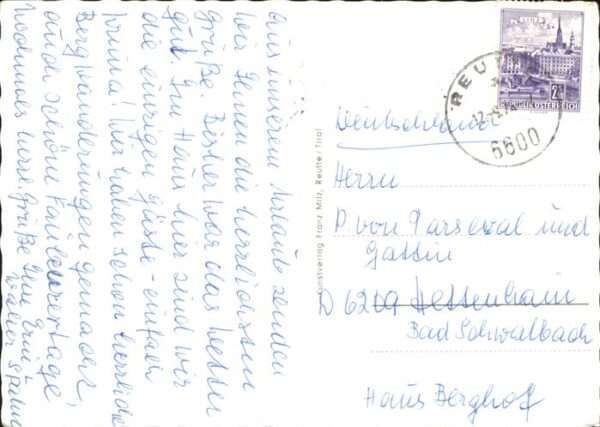 Aus unserem Urlaub senden
wir Ihnen die herrlichsten
Grüße. Bisher war das Wetter
gut. Im Haus hier sind wir
die einzigen Gäste - einfach
prima! Wir haben schon herrliche
Bergwanderungen gemacht,
auch schöne Faulenzertage,
Nochmals herzl. Grüße Ihre
Walter
Kunstverlag Franz Milz, Reutte / Tirol
REUTTE
6600
REPUBLIK ÖSTERREICH
Deutschland
Herrn
P von Parseval und
Gattin
D 6209 Hettenhain
Bad Schwalbach
Haus Berghof